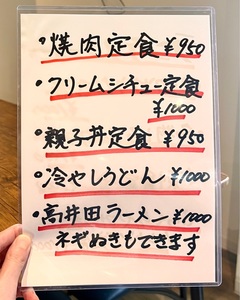 ・焼肉定食 ¥950
・クリームシチュー定食
¥1000
・親子丼定食 ¥950
・冷やしうどん ¥1000
・高井田ラーメン ¥1000
ネギぬきもできます